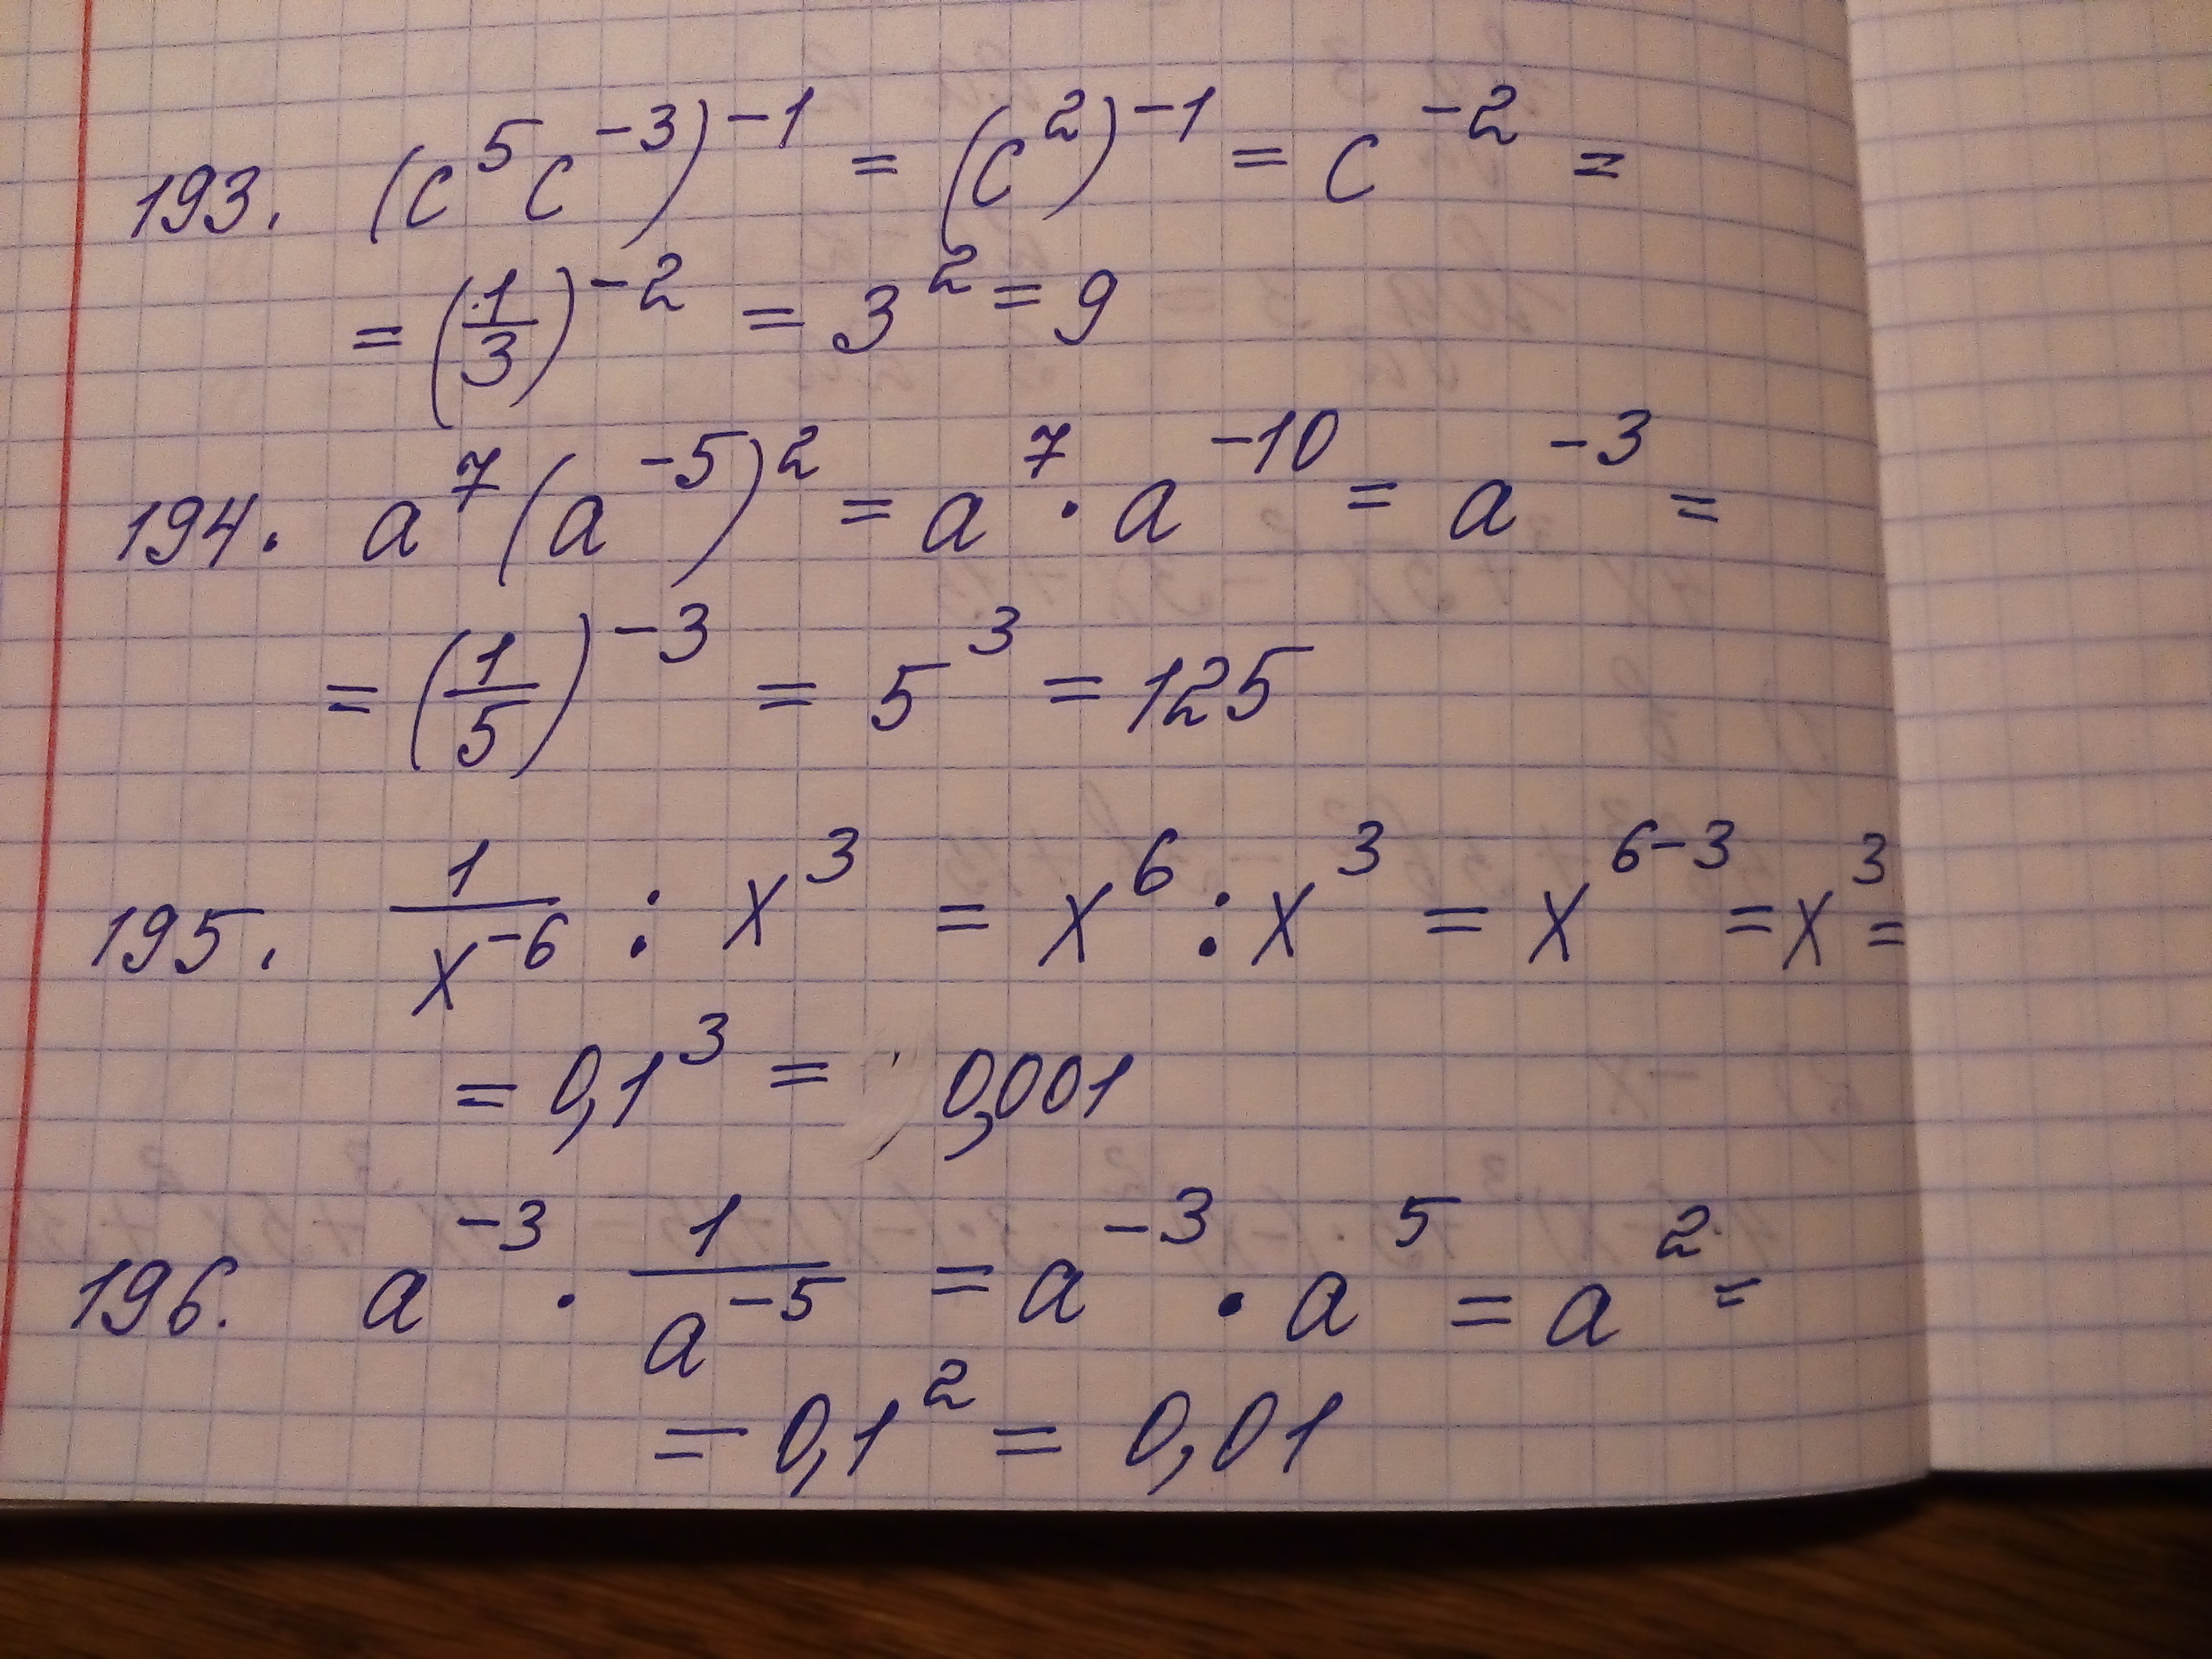 193. (c⁵c⁻³)⁻¹ = (c²)⁻¹ = c⁻² =
= (1/3)⁻² = 3² = 9
194. a⁷(a⁻⁵)² = a⁷ · a⁻¹⁰ = a⁻³ =
= (1/5)⁻³ = 5³ = 125
195. 1/x⁻⁶ : x³ = x⁶ : x³ = x⁶⁻³ = x³ =
= 0,1³ = 0,001
196. a⁻³ · 1/a⁻⁵ = a⁻³ · a⁵ = a² =
= 0,1² = 0,01